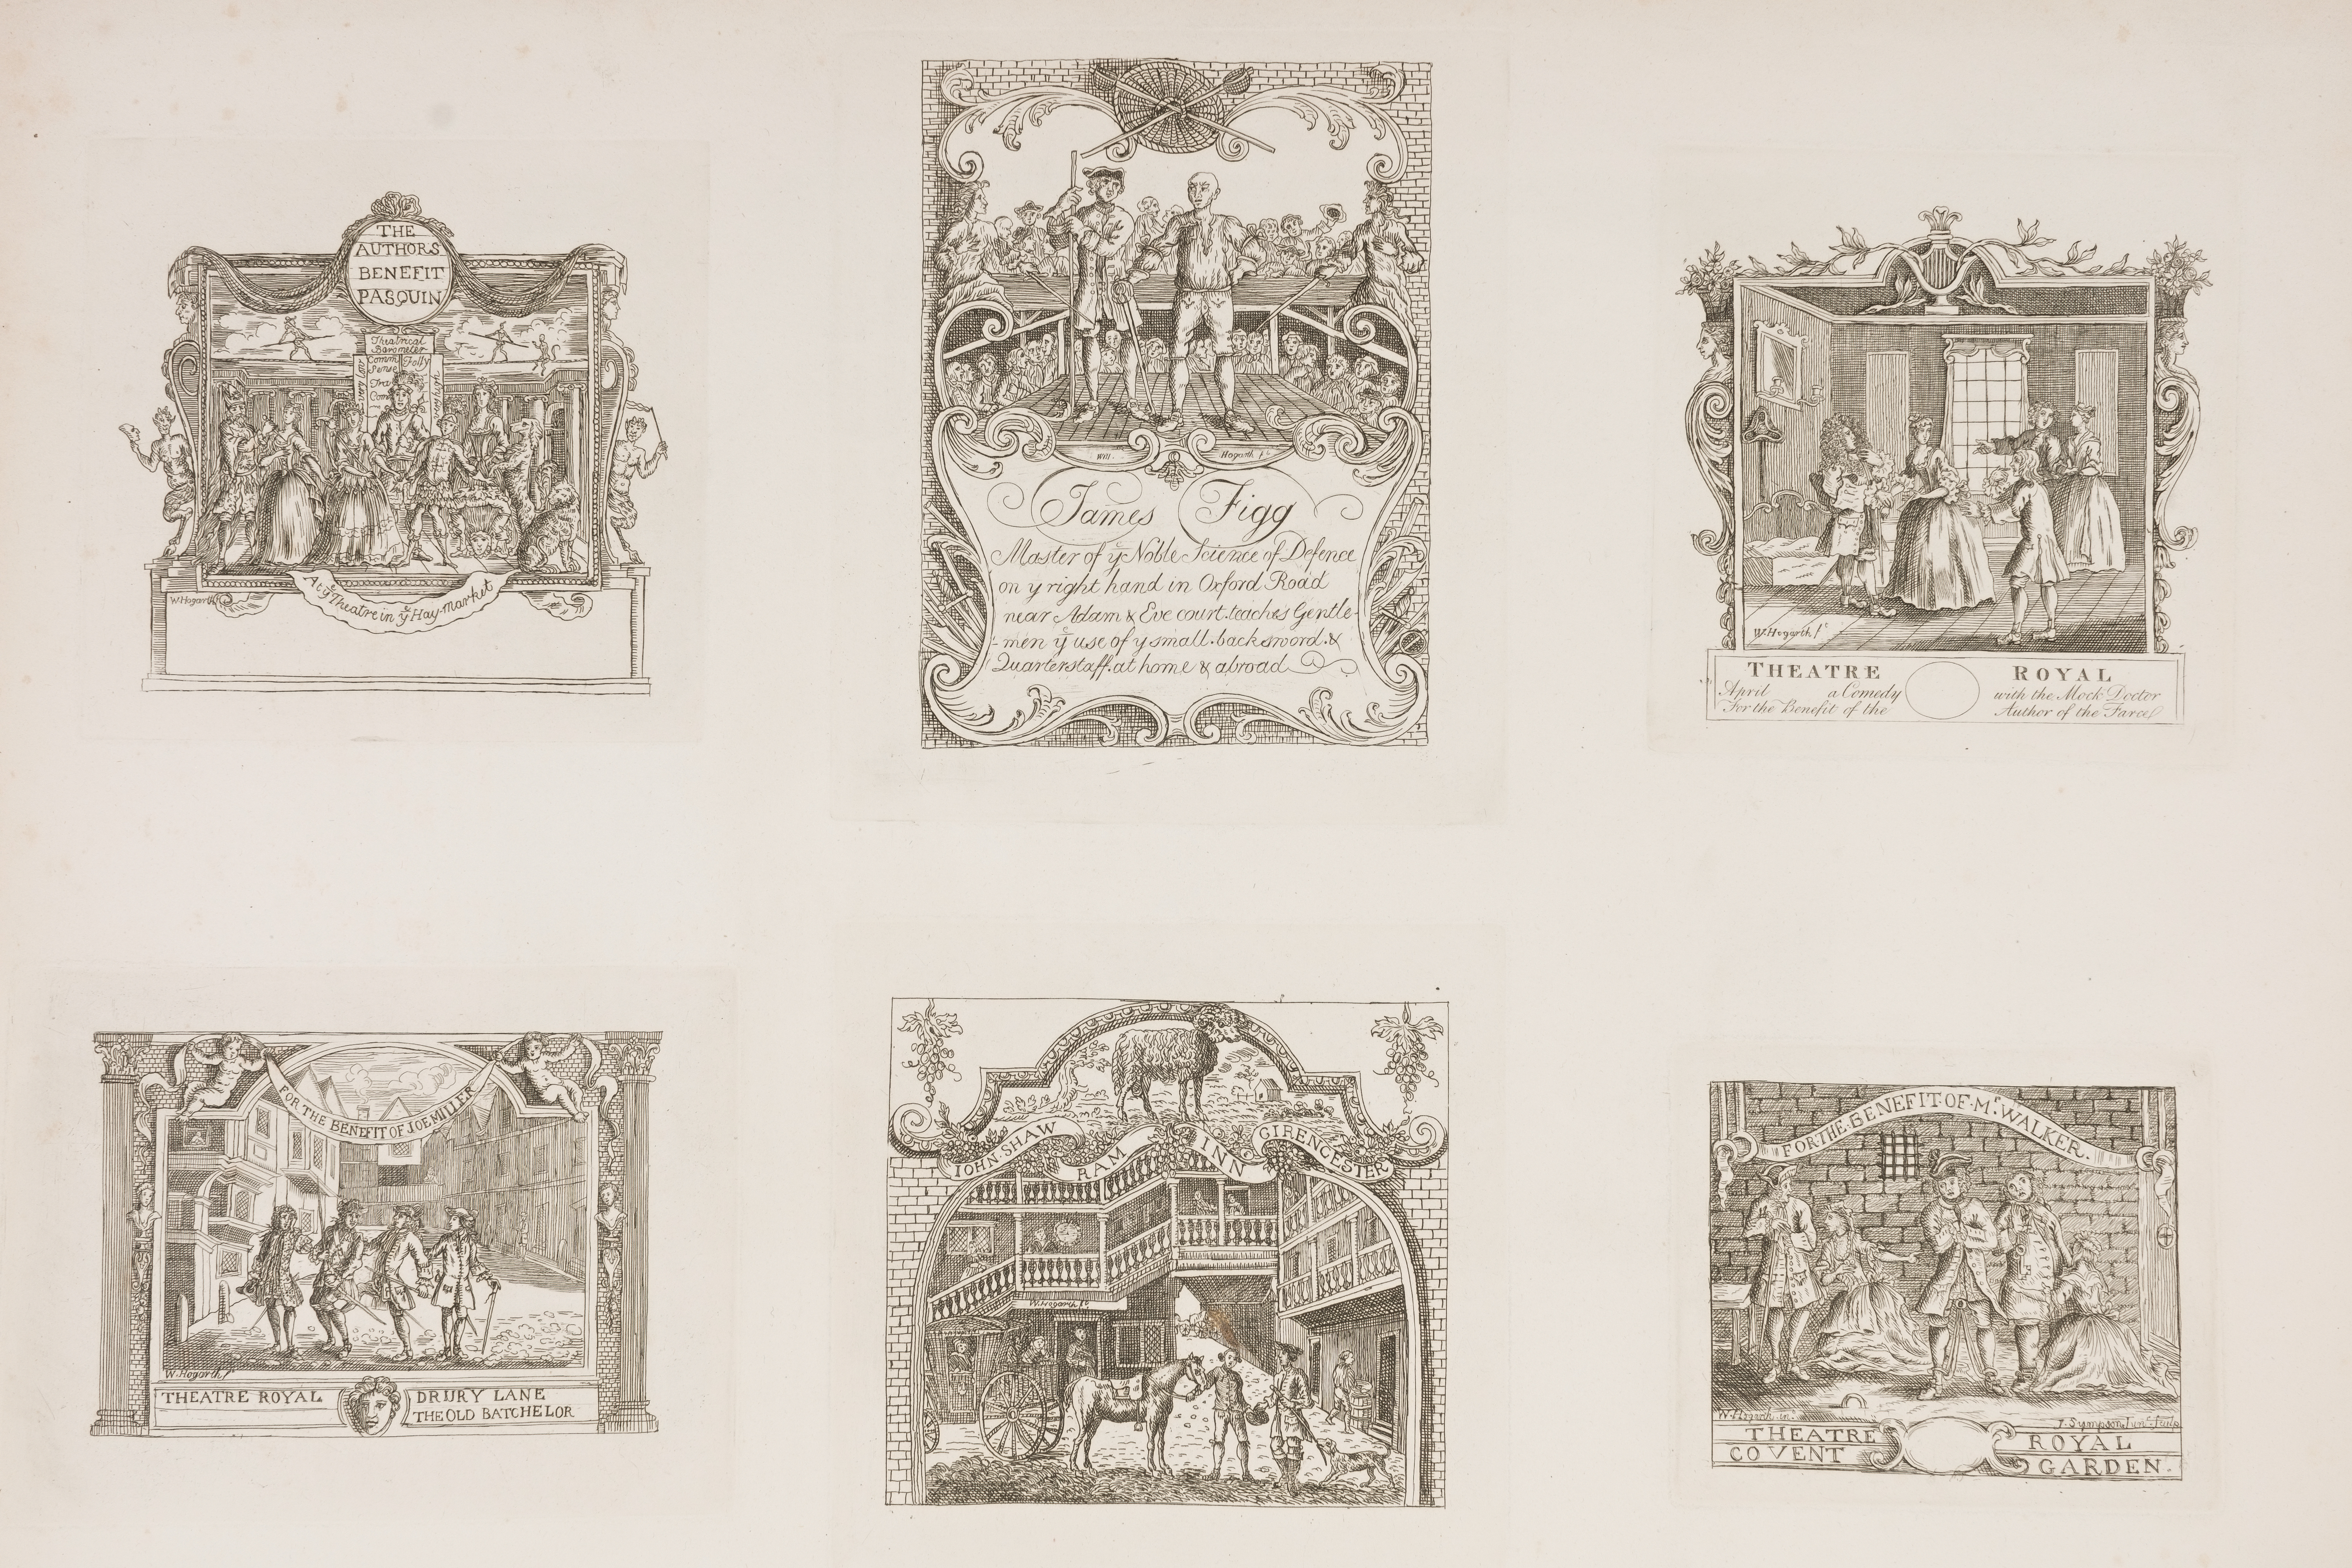 THE
AUTHORS
BENEFIT
PASQUIN
Theatrical
Barometer
Comm Folly
Sense
Tra
Com
W. Hogarth
At yͤ Theatre in yͤ Hay-Market
Hogarth fᵗ
James Figg
Master of yͤ Noble Science of Defence
on y right hand in Oxford Road
near Adam & Eve court. teaches Gentle-
-men yͤ use of y small. backsword. &
Quarterstaff. at home & abroad
W. Hogarth fᵗ
THEATRE ROYAL
April a Comedy with the Mock Doctor
For the Benefit of the Author of the Farce
FOR THE BENEFIT OF JOE MILLER
W. Hogarth fᵗ
THEATRE ROYAL DRURY LANE
THE OLD BATCHELOR
IOHN. SHAW RAM INN CIRENCESTER
W. Hogarth fᵗ
FOR·THE·BENEFIT·OF·Mʳ·WALKER.
W. Hogarth inᵗ J. Sympson Junʳ Sculp
THEATRE ROYAL
COVENT GARDEN.